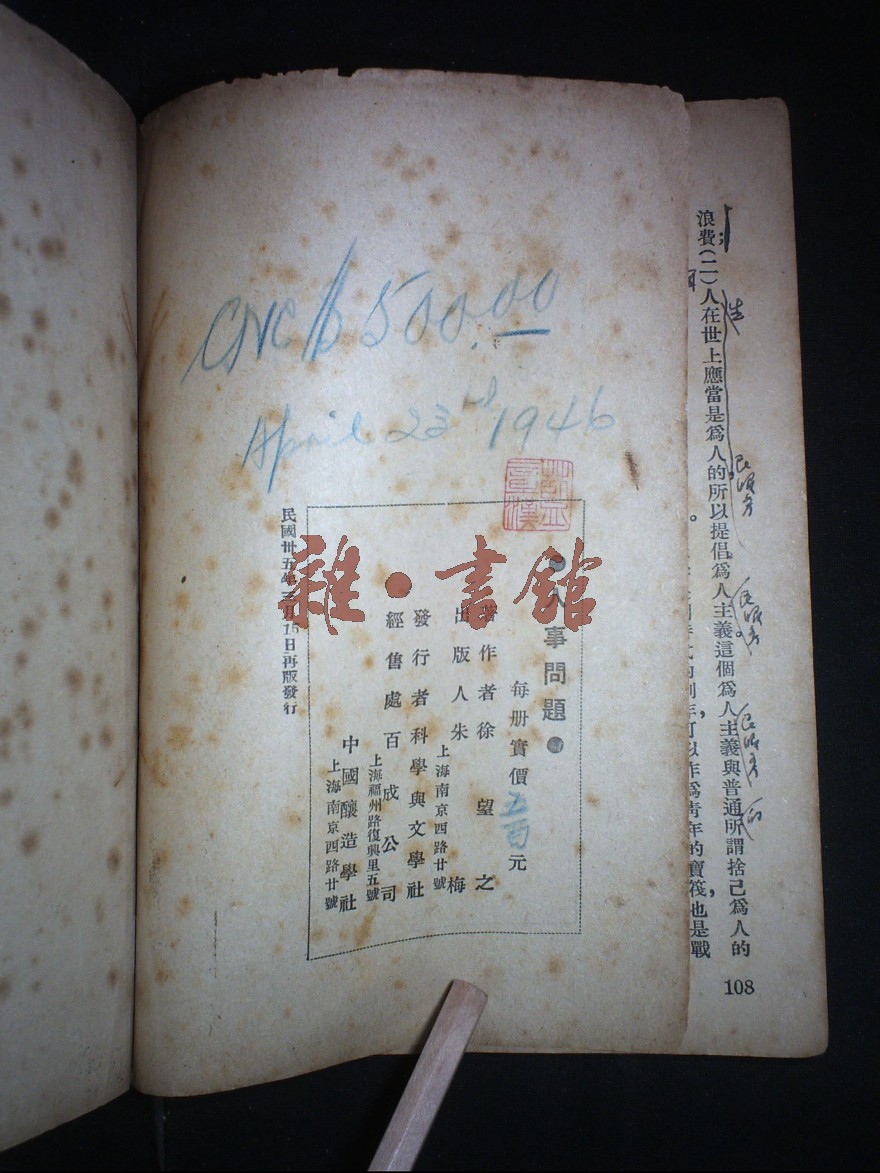 CNC $500.00
April 23rd 1946
人事問題
每册實價五百元
著作者徐望之
出版人朱梅
上海南京西路廿號
發行者科學與文學社
上海福州路復興里五號
經售處百成公司
中國釀造學社
上海南京西路廿號
民國卅五年三月15日再版發行
雜·書館
浪費(二)人在世上應當是爲人的所以提倡爲人主義這個爲人主義與普通所謂捨己爲人的
可以作爲靑年的寶筏,也是戰
108